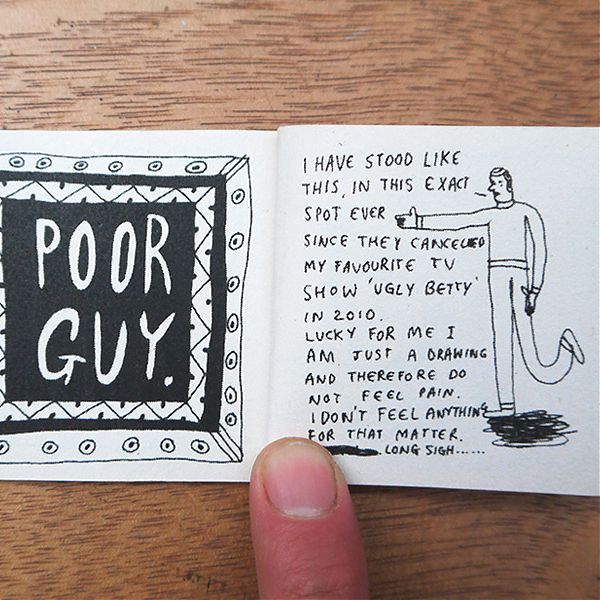 POOR
GUY.
I HAVE STOOD LIKE
THIS, IN THIS EXACT
SPOT EVER
SINCE THEY CANCELLED
MY FAVOURITE TV
SHOW 'UGLY BETTY'
IN 2010.
LUCKY FOR ME I
AM JUST A DRAWING
AND THEREFORE DO
NOT FEEL PAIN.
I DON'T FEEL ANYTHING
FOR THAT MATTER.
.LONG SIGH......